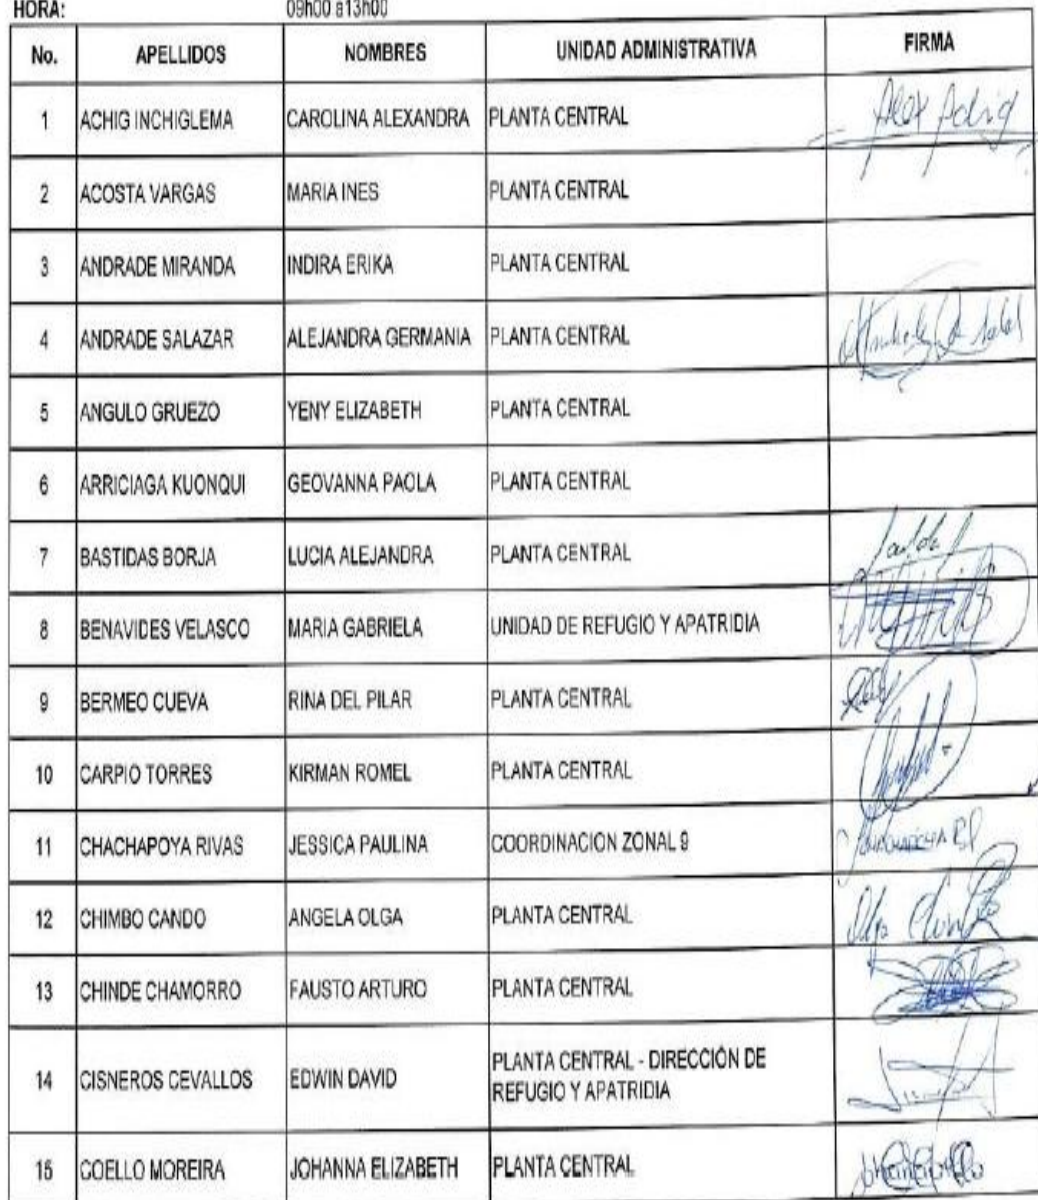 HORA: 09h00 a13h00
No. APELLIDOS NOMBRES UNIDAD ADMINISTRATIVA FIRMA
1 ACHIG INCHIGLEMA CAROLINA ALEXANDRA PLANTA CENTRAL Alex Achig
2 ACOSTA VARGAS MARIA INES PLANTA CENTRAL
3 ANDRADE MIRANDA INDIRA ERIKA PLANTA CENTRAL
4 ANDRADE SALAZAR ALEJANDRA GERMANIA PLANTA CENTRAL
5 ANGULO GRUEZO YENY ELIZABETH PLANTA CENTRAL
6 ARRICIAGA KUONQUI GEOVANNA PAOLA PLANTA CENTRAL
7 BASTIDAS BORJA LUCIA ALEJANDRA PLANTA CENTRAL
8 BENAVIDES VELASCO MARIA GABRIELA UNIDAD DE REFUGIO Y APATRIDIA
9 BERMEO CUEVA RINA DEL PILAR PLANTA CENTRAL
10 CARPIO TORRES KIRMAN ROMEL PLANTA CENTRAL
11 CHACHAPOYA RIVAS JESSICA PAULINA COORDINACION ZONAL 9
12 CHIMBO CANDO ANGELA OLGA PLANTA CENTRAL
13 CHINDE CHAMORRO FAUSTO ARTURO PLANTA CENTRAL
14 CISNEROS CEVALLOS EDWIN DAVID PLANTA CENTRAL - DIRECCIÓN DE
REFUGIO Y APATRIDIA
15 COELLO MOREIRA JOHANNA ELIZABETH PLANTA CENTRAL